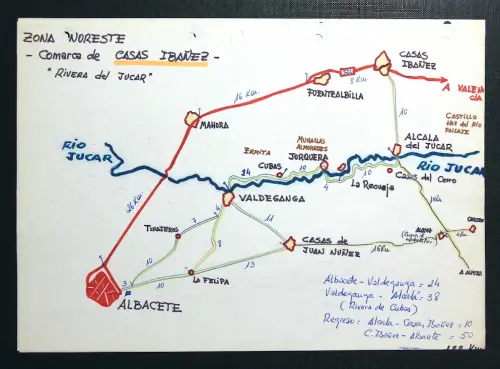 ZONA NORESTE
- Comarca de CASAS IBAÑEZ -
"Rivera del JUCAR"
CASAS IBAÑEZ
8 Km.
FUENTEALBILLA
A VALENCIA
16 Km.
MAHORA
15
CASTILLO
ALCALA del JUCAR
MURALLAS ALMOHADES
ERMITA
JORQUERA
RIO JUCAR
RIO JUCAR
CUBAS
24
10
10
4
La Recueja
Casas del Cerro
26 Km.
VALDEGANGA
TINAJEROS
7
11
8
CASAS de JUAN NUÑEZ
16 Km
10
13
3
10
LA FELIPA
ALBACETE
Albacete - Valdeganga = 24
Valdeganga - Alcalá = 38
(Rivera de Cubas)
Regreso: Alcala - Casas Ibañez = 10
C. Ibañez - Albacete = 50